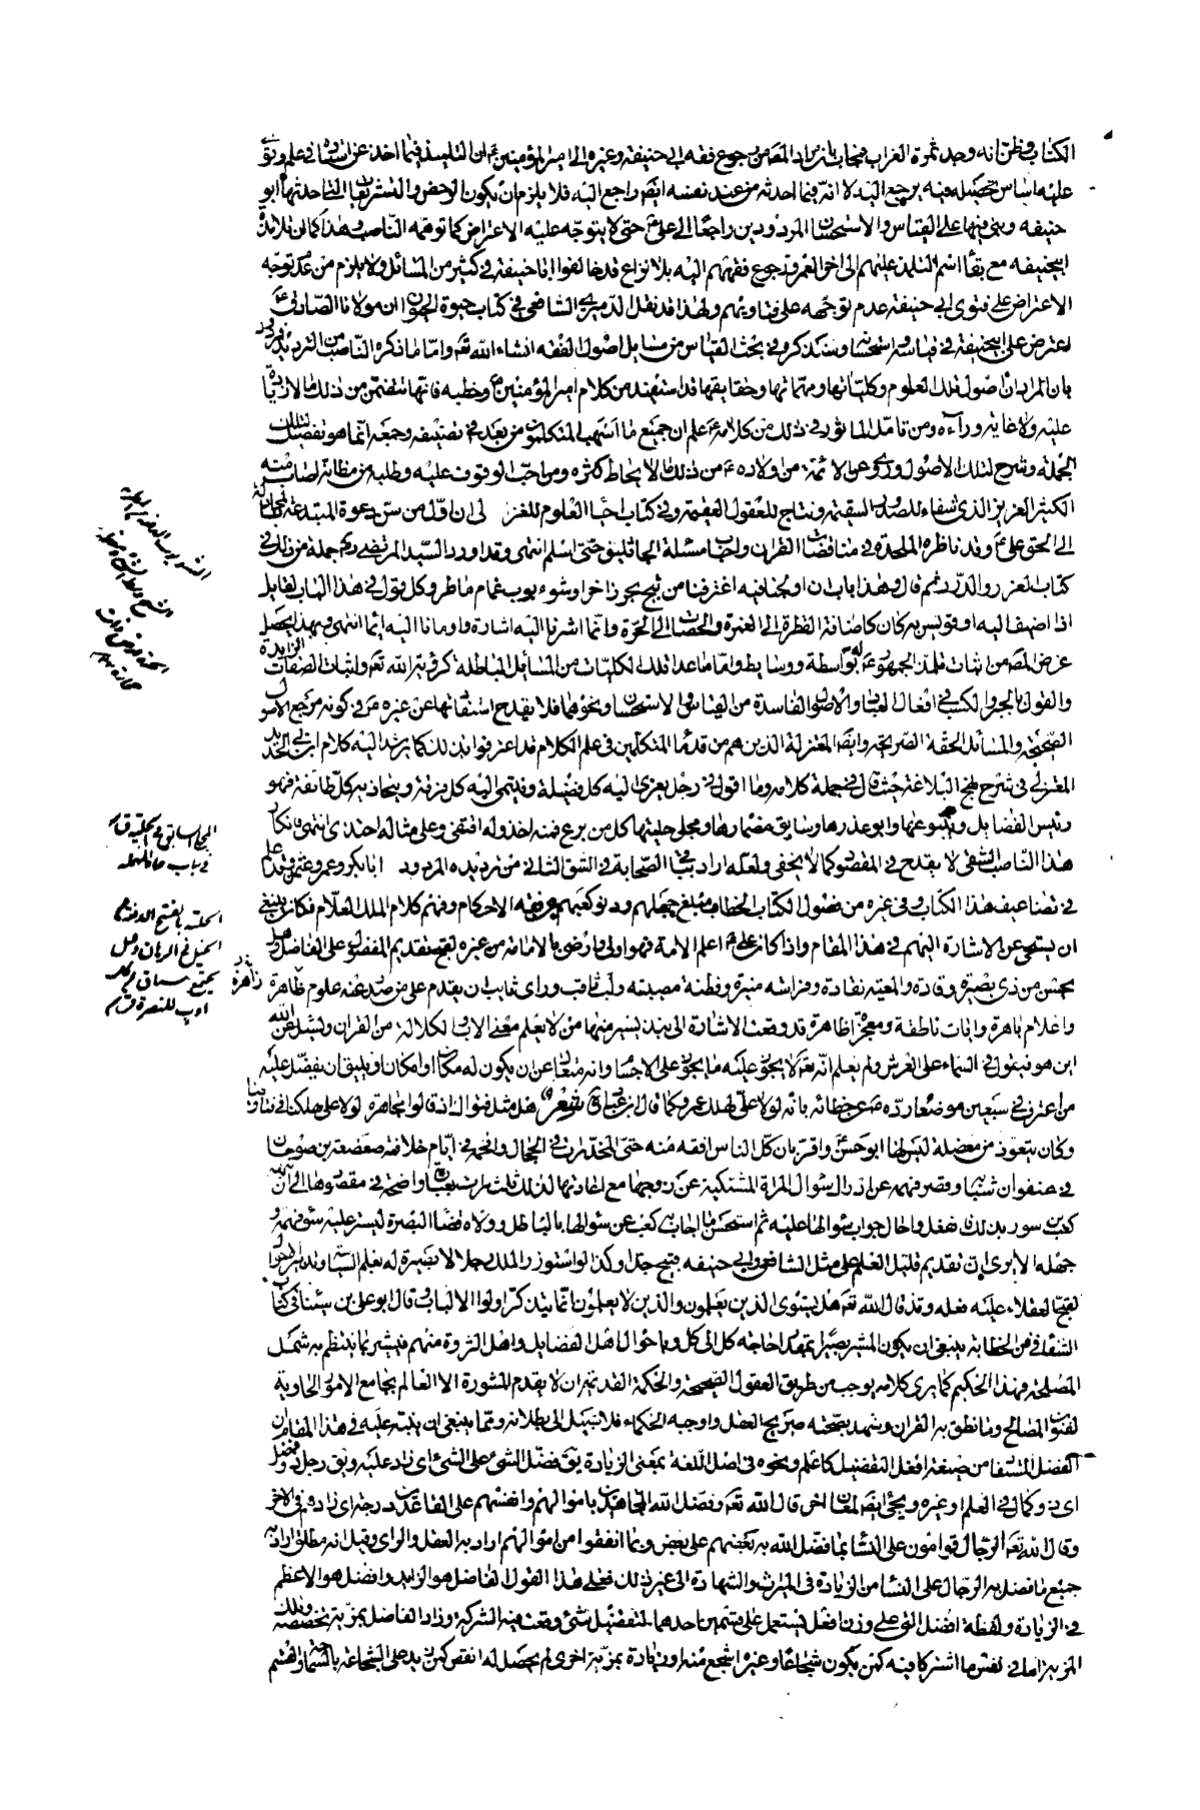 الكتاب وظن انه وجد ثمرة الغراب فيجاب بان مراد المص من رجوع فقه ابي حنيفة وغيره الى امير المؤمنين ان التلميذ فيما اخذ عن استاذه في علم
عليه اساس تحصيله فيه يرجع اليه لا انه فيما احدثه من عند نفسه ايضا راجع اليه فلا يلزم ان يكون الرخص والتشريعات التي احدثها ابو
حنيفه وبنى فيها على القياس والاستحسان المردودين راجعا الى علي حتى يتوجه عليه الاعتراض كما توهمه الناصب وهذا كما ان تلامذة
ابيحنيفه مع بقاء اسم التلمذ عليهم الى اخر العمر ورجوع فقههم اليه بلا نزاع قد خالفوا ابا حنيفة في كثير من المسائل ولا يلزم من عدم توجه
الاعتراض على فتوى ابي حنيفة عدم توجهه على فتاويهم ولهذا قد نقل الدميري الشافعي في كتاب حيوة الحيوان ان مولانا الصادق
اعترض على ابيحنيفة في قياسه واستحسانه وسنذكره في بحث القياس من مسايل اصول الفقه انشاء الله تعه واما ما ذكره الناصب من الترديد
بان المراد ان اصول تلك العلوم وكلياتها ومهماتها وحقايقها قد استفيد من كلام امير المؤمنين وخطبه فانها تتضمن من ذلك ما لا زيادة
عليه ولا غاية وراءه ومن تامل الماثور في ذلك من كلامه علم ان جميع ما اسهب المتكلمون من بعد في تصنيفه وجمعه انما هو تفصيل لتلك
الجمله وشرح لتلك الاصول وروي عن الائمة من اولاده من ذلك ما لا يحاط كثره ومن احب الوقوف عليه وطلبه من مظانه اصاب منه
الكثير الغزير الذي شفاء للصدور السقيمة ونتاج للعقول العقيمة وفي كتاب احياء العلوم للغزالي ان اول من سن دعوة المبتدعة بالمجادلة
الى الحق علي وقد ناظره الملحدة في مناقضات القران واجاب مسئلة الجاثليق حتى اسلم انتهى وقد اورد السيد المرتضى جملة من ذلك في
كتاب الغرر والدرر ثم قال وهذا باب ان ولجنا فيه اغترفنا من ثبج بحر زاخر او شؤبوب غمام ماطر وكل قول في هذا الباب لقايل
اذا اضيف اليه او قويس به كان كاضافة القطرة الى الغمرة والحصاة الى الحرة وانما اشرنا اليه اشارة واومانا اليه ايماء انتهى وبهذا يحصل
غرض المص من اثبات تلمذ الجمهور له بواسطة ووسايط واما ما عدا تلك الكليات من المسائل الباطله كرؤية الله تعه واثبات الصفات الزايدة
والقول بالجبر والكسب في افعال العباد والاصول الفاسدة من القياس والاستحسان ونحوهما فلا يقدح استفاتها عن غيره في كونه مرجع الاصول
الصحيحة والمسائل الحقة الصريحة وايضا المعتزلة الذين هم من قدماء المتكلمين في علم الكلام قد اعترفوا بذلك كما يرشد اليه كلام ابن ابي الحديد
المعتزلي في شرح نهج البلاغة حيث قال في جملة كلامه وما اقول في رجل يعزى اليه كل فضيلة وتنتهي اليه كل فرقة ويتجاذبه كل طائفة فهو
رئيس الفضايل وينبوعها وابو عذرها وسابق مضمارها ومجلي حلبتها كل من برع فيه اخذ وله اقتفى وعلى مثاله احتذى انتهى فانكار
هذا الناصب الشقي لا يقدح في المقصود كما لا يخفى ولعله اراد بباقي الصحابة في الشق الثاني من ترديده المردود ابابكر وعمر وعثمن وقد علم
في تضاعيف هذا الكتاب وفي غيره من فصول الكتاب والخطاب مبلغ جهلهم ودنو كعبهم عن فقه الاحكام وفهم كلام الملك العلام فكان ينبغي
ان يستحيى عن الاشارة اليهم في هذا المقام واذا كان علي اعلم الامة فهو اولى واوفى بالامامة من غيره لقبح تقديم المفضول على الفاضل وهل
يحسن من ذي بصيرة وقادة والمعية نقادة وفراسة منيرة وفطنة مصيبة ولب ثاقب وراي غايب ان يقدم على من صدر عنه علوم ظاهرة زاهرة
واعلام باهرة وايات ناطقة ومعجزات ظاهرة قد وقعت الاشارة الى نبذ يسير منها من لا يعلم معنى الاب والكلالة من القران ويسئل عن الله
اين هو فيقول في السماء على العرش ولم يعلم انه تعه لا يجوز عليه ما يجوز على الاجسام وانه متعال عن ان يكون له مكان او امكان او يليق ان يفضل عليه
من اعترف في سبعين موضعا رده عن خطائه بانه لولا علي لهلك عمر وكما قال شعر هل مثل فتواك اذ قالوا مجاهرة لولا علي هلكنا في فتاوينا
وكان يتعوذ من معضلة ليس لها ابو حسن واقر بان كل الناس افقه منه حتى المخدرات في الحجال والحمه في ايام خلافته صعصعة بن صوحان
في عنفوان شبابه وقصر فهمه عن ادراك سؤال المراة المشتكية عن زوجها مع اعادتها لذلك ثلث مرات بعبارة واضحة في مقصودها الى ان
كعب بن سور بذلك ففعل واحال جواب سؤالها عليه ثم استحسن ما اجاب به كعب عن سؤالها بالباطل وولاه قضاء البصرة ليستر عليه سوء فهمه و
جهله الا يرى ان تقديم قليل العلم على مثل الشافعي وابي حنيفه قبيح جدا وكذا لو استوزر الملك رجلا لا بصيرة له بعلم السياسة وتدابير
لقبح العقلاء عليه فعله وقد قال الله تعه هل يستوى الذين يعلمون والذين لا يعلمون انما يتذكر اولوا الالباب وقال ابو علي بن سينا في كتاب
الشفا في فن الخطابة ينبغي ان يكون المشير بصيرا بمقدار حاجة كل الى كل وباحوال اهل الفضايل واهل الثروة منهم فيشير بما ينتظم به شمل
المصلحة فهذا الحكيم كما يرى كلامه يوجب من طريق العقول الصحيحة والحكمة القديمة ان لا يقدم للمشورة الا العالم بمجامع الامور الحاوية
لفنون المصالح وما نطق به القران وشهد بصحته صريح العقل واوجبه الحكماء فلا سبيل الى بطلانه ومما ينبغي ان ينبه عليه في هذا المقام ان
الفضل المستفاد من صيغة افعل التفضيل كاعلم ونحوه في اصل اللغة بمعنى الزيادة يق فضل الشئ على الشئ اي زاد عليه ويق رجل ذو فضل
اي ذو كمال في العلم او غيره ويجئ ايضا لمعان اخر قال الله تعه وفضل الله المجاهدين باموالهم وانفسهم على القاعدين درجة اي زادهم في الاخر
وقال الله تعه الرجال قوامون على النساء بما فضل الله به بعضهم على بعض وبما انفقوا من اموالهم اراد به العقل والراي وقيل انه مطلق اراد به
جميع ما فضل به الرجال على النساء من الزيادة في الميراث والشهادة الى غير ذلك فعلى هذا القول الفاضل هو الزايد وافضل هو الاعظم
في الزيادة ولفظة افضل التي على وزن افعل يستعمل على قسمين احدهما لتفضيل شئ وقعت فيه الشركة وزاد الفاضل بمزية تخصصه وتلك
المزية اما في نفس ما اشتركا فيه كمن يكون شجاعا وغيره اشجع منه او زيادة بمزية اخرى لم يحصل له انقص كمن يزيد على الشجاعة بالسخاء والقسم
الشؤبوب الدفعة من المطر
المجلي السابق في الحلبة
الحلبة بالفتح الدفعة من
الخيل في الرهان وخيل
تجتمع للسباق من كل
اوب للنصرة قاموس